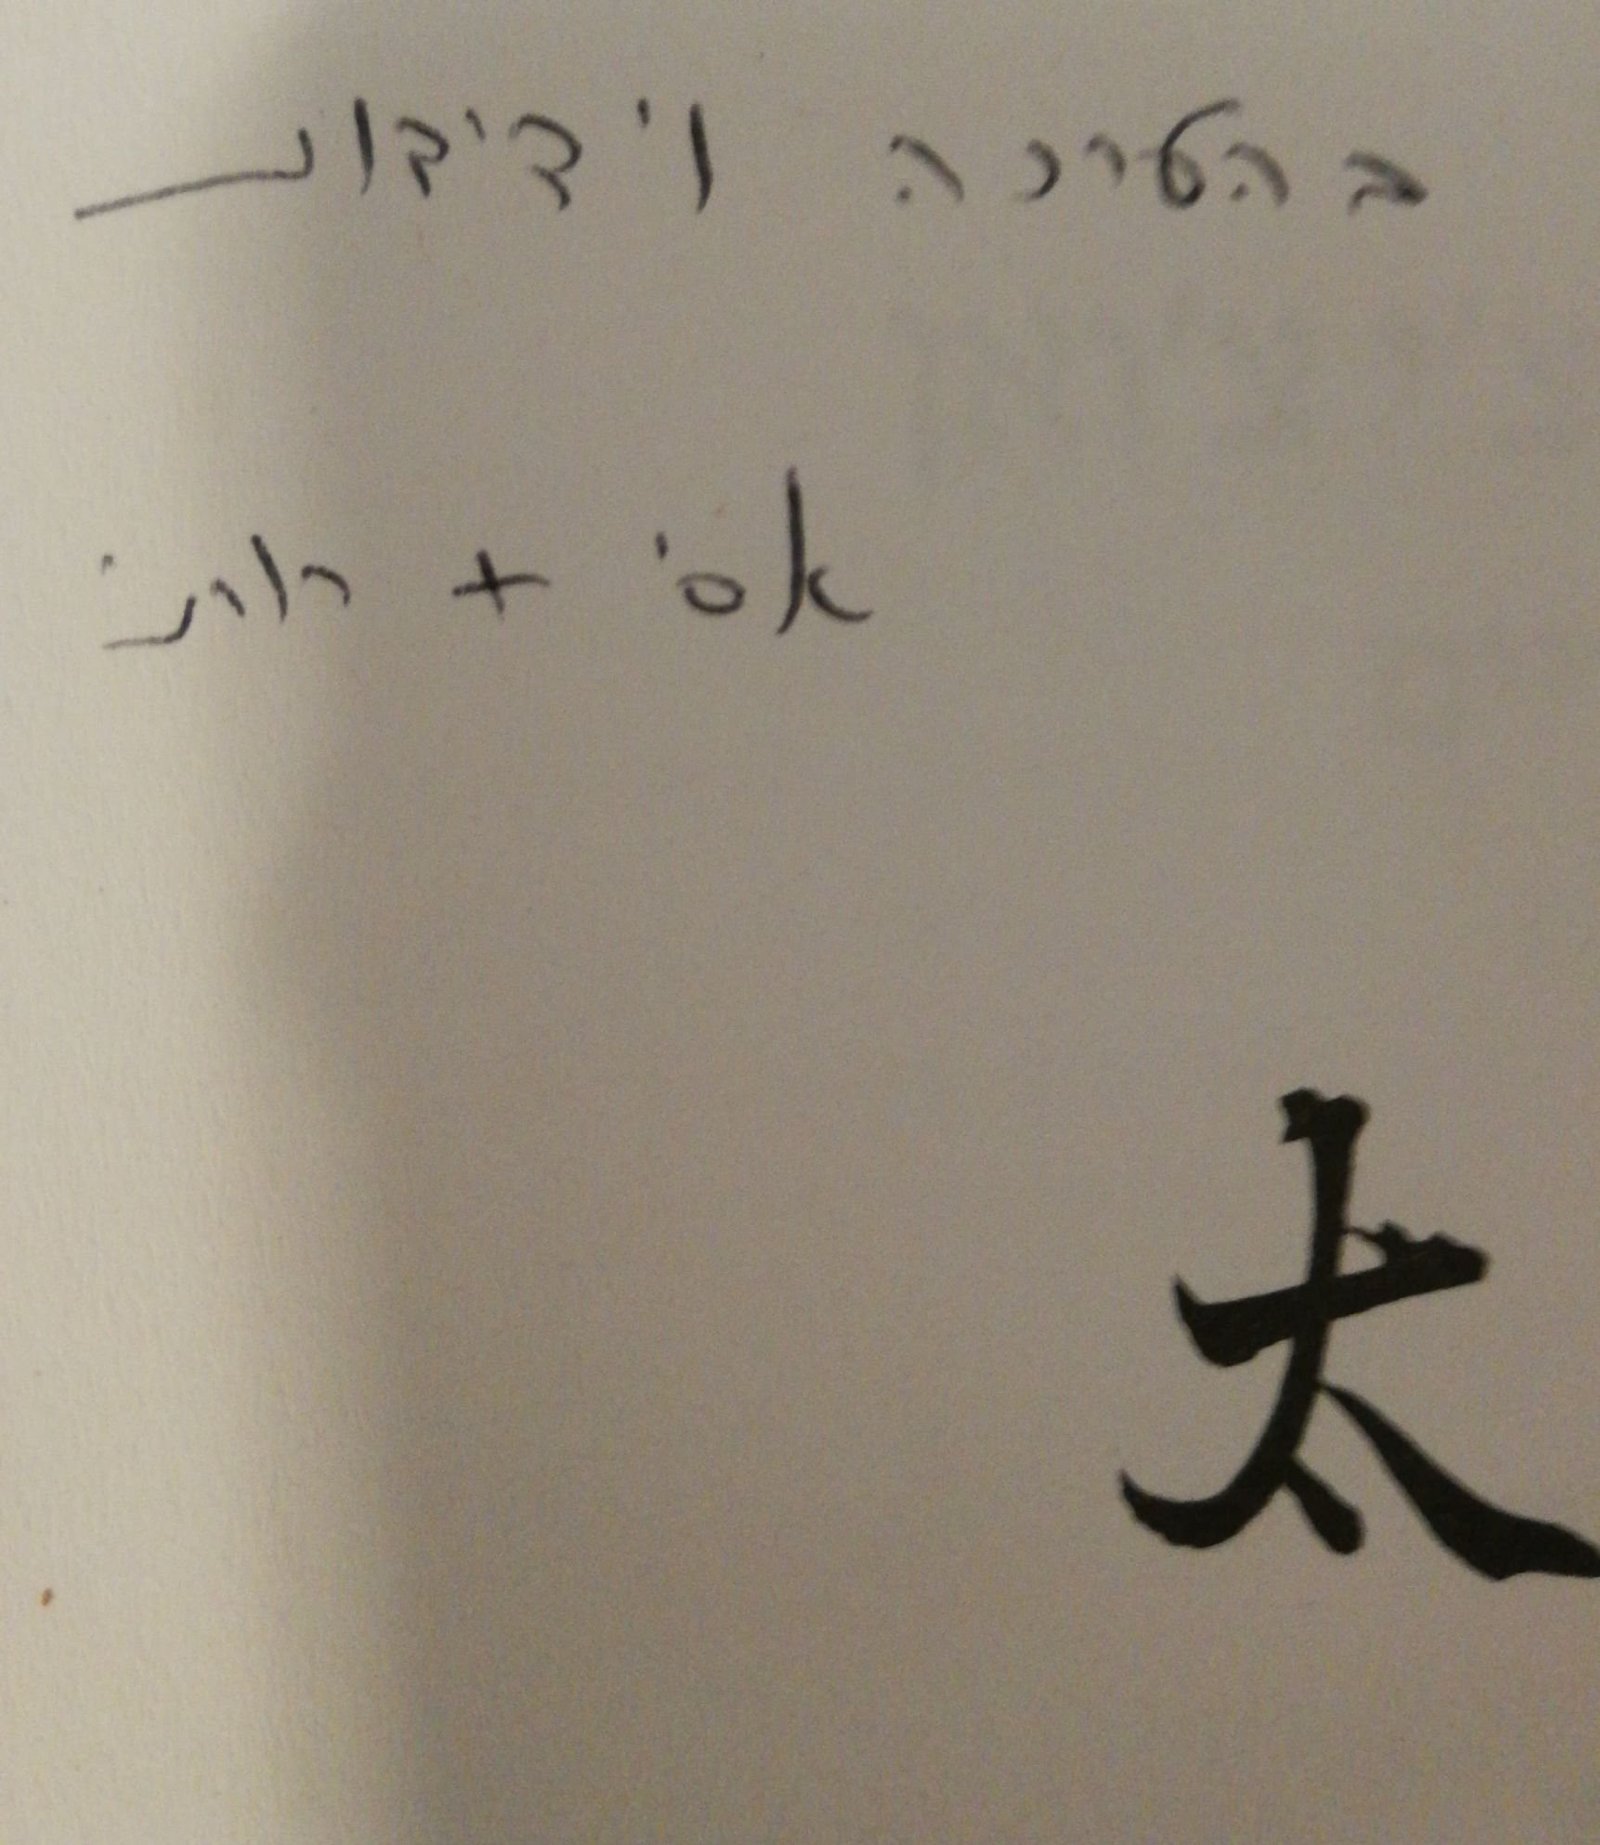 בהערכה וידידות
אסי + רותי
太